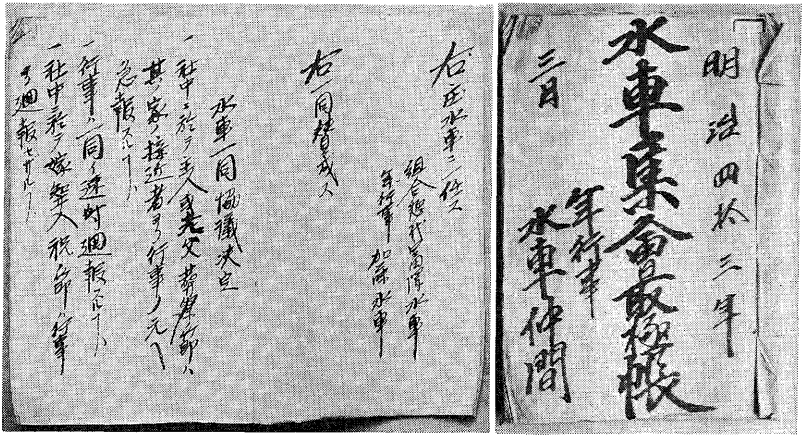 明治四拾三年
水車集會最極帳
三月
年行事
水車仲間
右 水車ニ任ス
組合 水車
年行事 加藤水車
右一同賛成ス
水車一同協議決定
一 社中ニ於テ主人或老父葬 節ハ
其ノ家ノ接近者ヨリ行事ノ元ヘ
急報スルコト
一 行事ハ一同ヘ 廻報スルコト
一 社中ニ於テ嫁聟入 節ハ行事
ヨリ廻報セサルコト